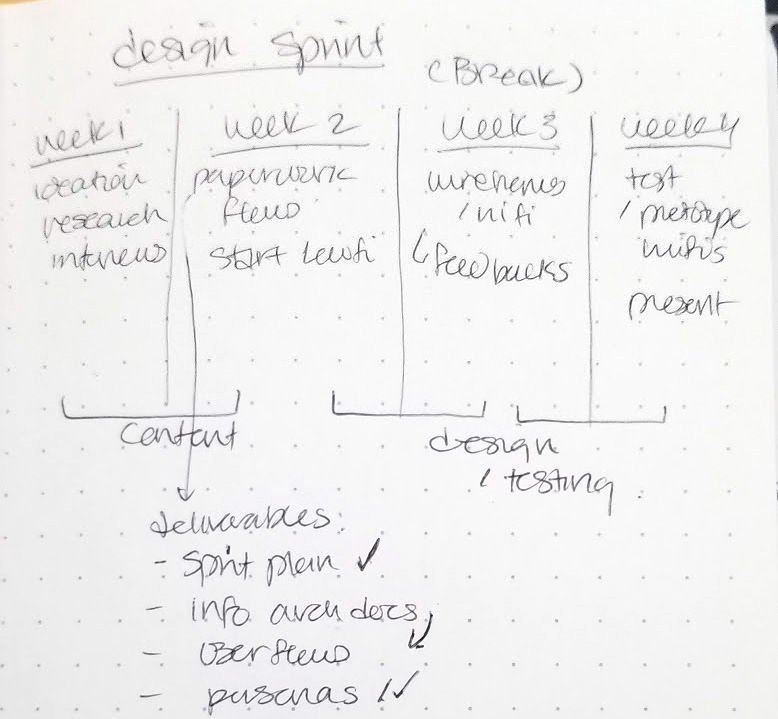 design sprint
(Break)
week 1
ideation
research
interviews
week 2
paperwork
flows
start lowfi
week 3
wireframes
/ hifi
feedbacks
week 4
test
/ prototype
hifi's
present
content
design
/ testing
deliverables:
- Sprint plan ✓
- info arch docs,
- User flows ✓
- personas / ✓